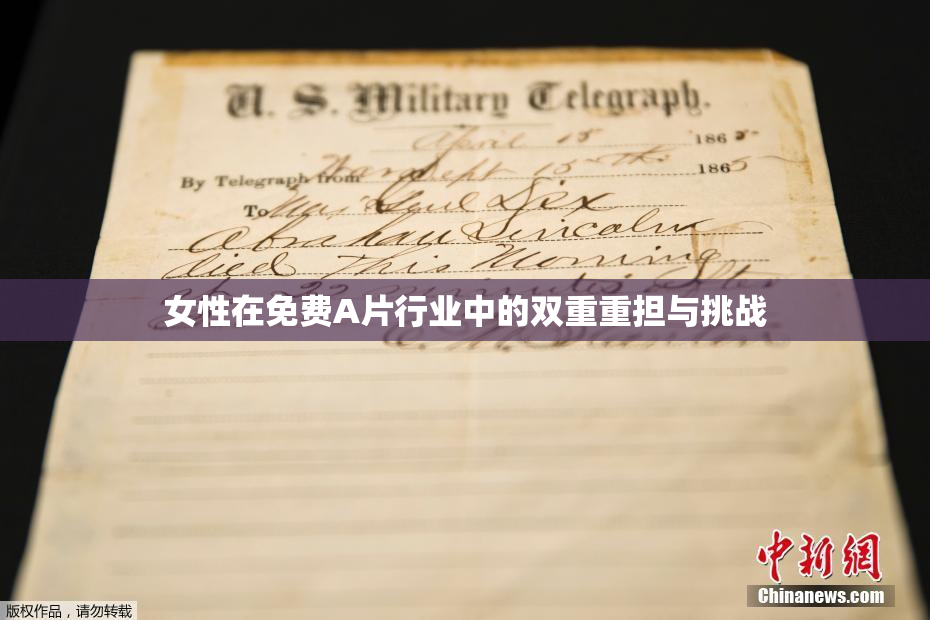 U. S. Military Telegraph.
April 15 1865
By Telegraph from War Dept 15th 1865
To Maj Genl Dix
Abraham Lincoln
died This Morning
at 22 minutes after
女性在免费A片行业中的双重重担与挑战
E. M. Stanton
中新网
Chinanews.com
版权作品，请勿转载